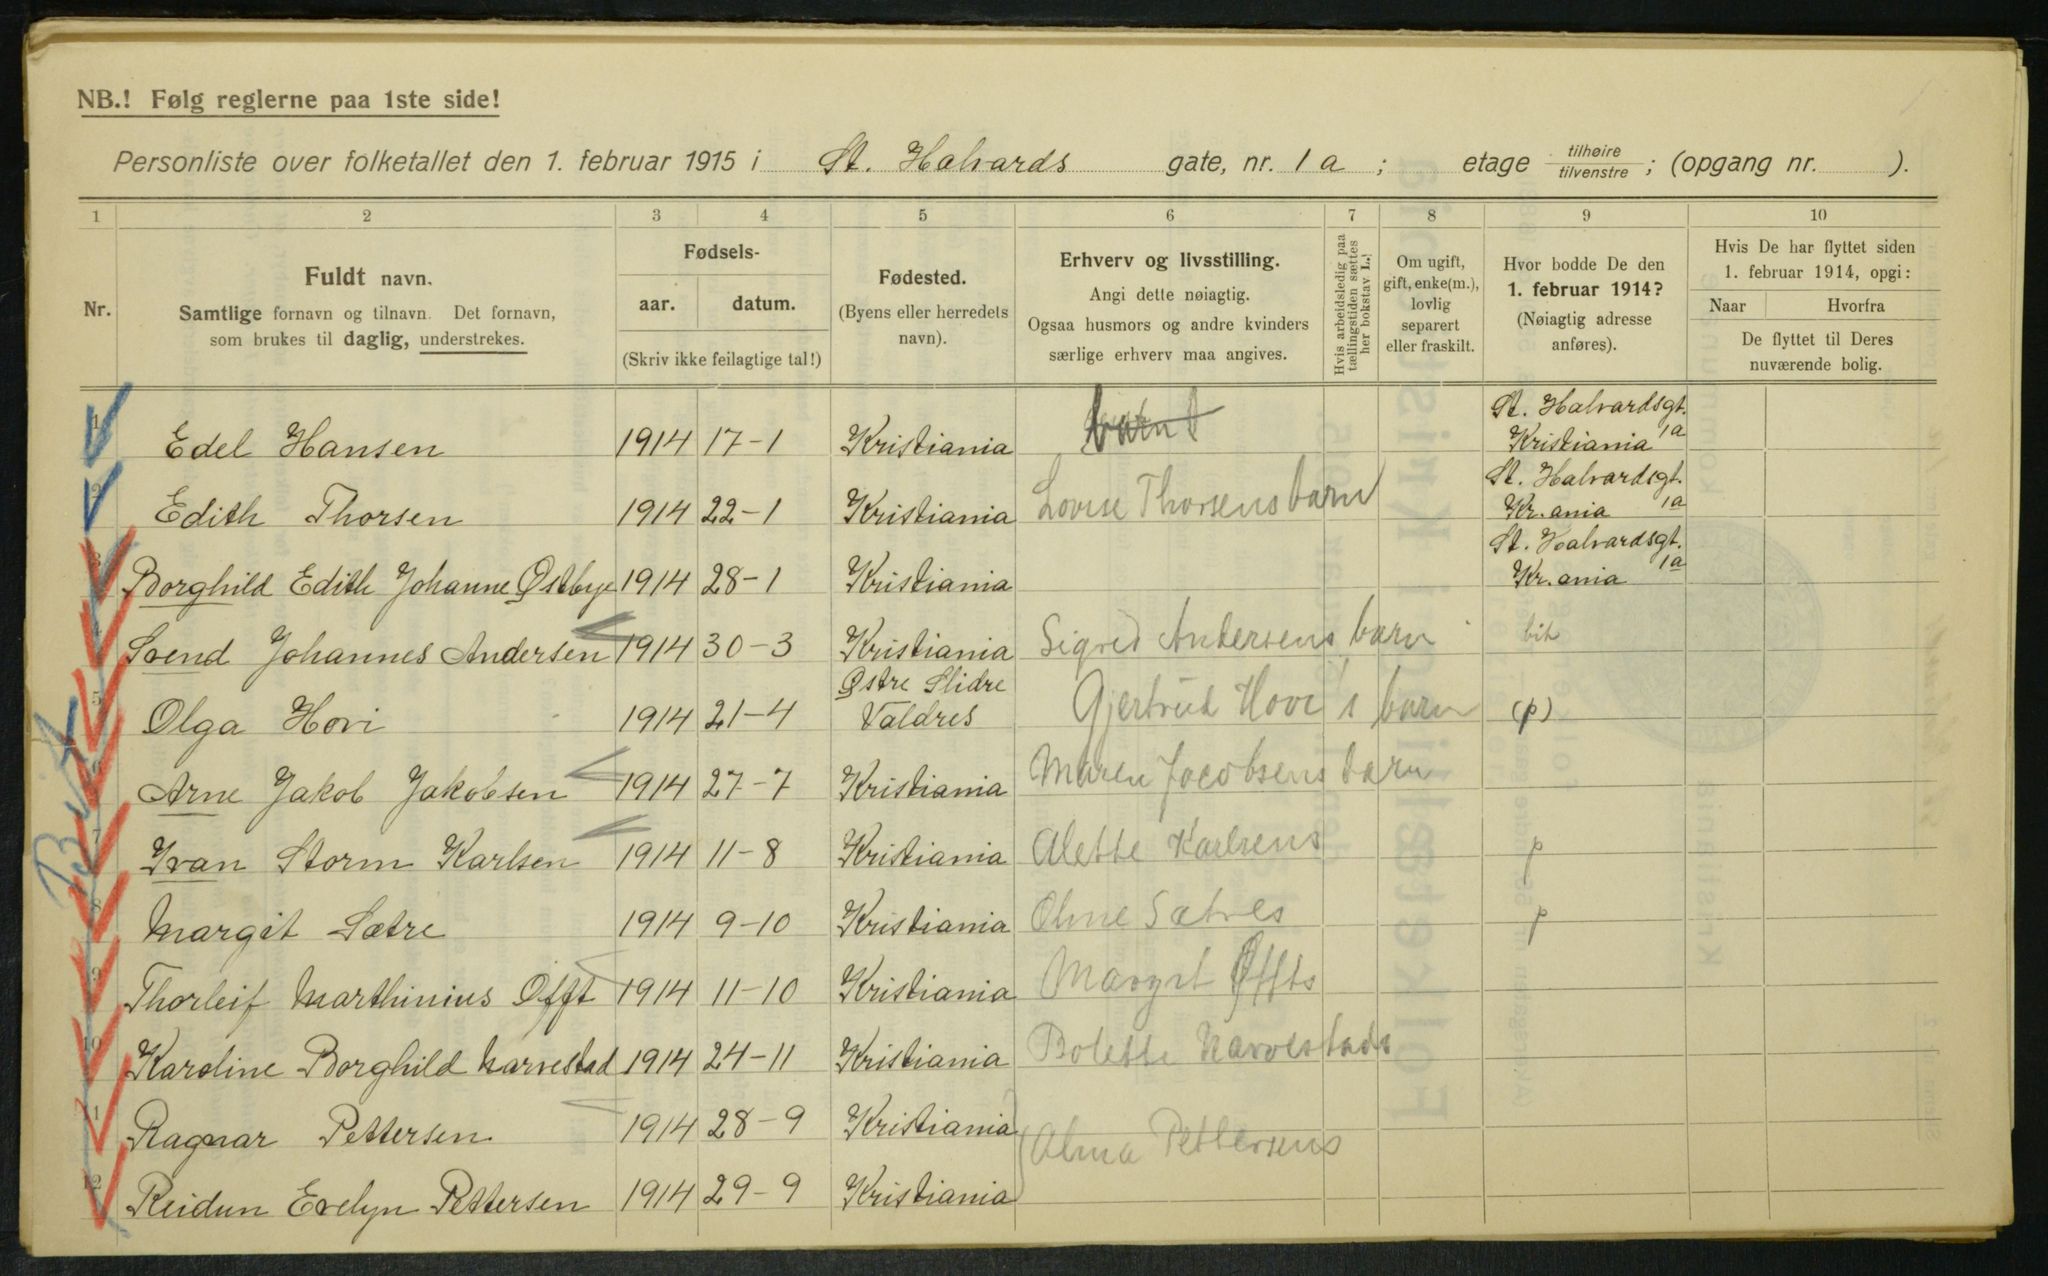 NB.! Følg reglerne paa 1ste side!
Personliste over folketallet den 1. februar 1915 i St. Halvards gate, nr. 1a ; etage tilhøire tilvenstre ; (opgang nr. ).
1 2 3 4 5 6 7 8 9 10
Nr.
Fuldt navn.
Samtlige fornavn og tilnavn. Det fornavn,
som brukes til daglig, understrekes.
Fødsels-
aar. datum.
(Skriv ikke feilagtige tal!)
Fødested.
(Byens eller herredets
navn).
Erhverv og livsstilling.
Angi dette nøiagtig.
Ogsaa husmors og andre kvinders
særlige erhverv maa angives.
Hvis arbeidsledig paa
tællingstiden sættes
her bokstav L.
Om ugift,
gift, enke(m.),
lovlig
separert
eller fraskilt.
Hvor bodde De den
1. februar 1914?
(Nøiagtig adresse
anføres).
Hvis De har flyttet siden
1. februar 1914, opgi:
Naar Hvorfra
De flyttet til Deres
nuværende bolig.
St. Halvardsgt.
1 Edel Hansen 1914 17-1 Kristiania barn Kristiania 1a
St. Halvardsgt.
2 Edith Thorsen 1914 22-1 Kristiania Lovise Thorsens barn Kr.ania 1a
St. Halvardsgt.
3 Borghild Edith Johanne Østbye 1914 28-1 Kristiania Kr.ania 1a
4 Svend Johannes Andersen 1914 30-3 Kristiania Sigrid Andersens barn bit
Østre Slidre
5 Olga Hovi 1914 21-4 Valdres Gjertrud Hovi's barn (p)
6 Arne Jakob Jakobsen 1914 27-7 Kristiania Maren Jacobsens barn
7 Ivan Storm Karlsen 1914 11-8 Kristiania Alette Karlsens p
8 Margit Sætre 1914 9-10 Kristiania Oline Sætres p
9 Thorleif Marthinius Offt 1914 11-10 Kristiania Margit Øffts
10 Karoline Borghild Narvestad 1914 24-11 Kristiania Bolette Narvestads
11 Ragnar Pettersen 1914 28-9 Kristiania
Alma Pettersens
12 Reidun Evelyn Pettersen 1914 29-9 Kristiania
Bit